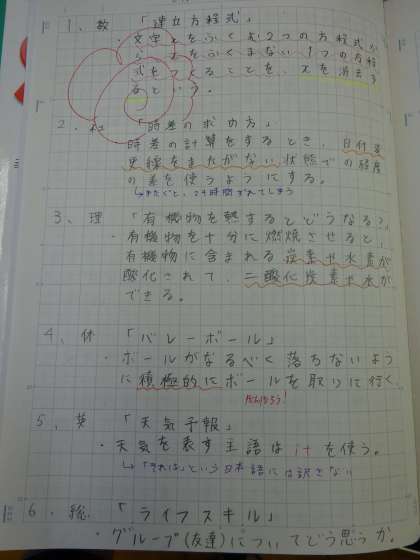 1、数 「連立方程式」
・文字xをふくむ2つの方程式か
ら、xをふくまない1つの方程
式をつくることを、xを消去す
るという。
2、社 「時差の求め方」
時差の計算をするとき、日付変
更線をまたがない状態での経度
の差を使うようにする。
↳またぐと、24時間ずれてしまう
3、理 「有機物を熱するとどうなる?」
・有機物を十分に燃焼させると、
有機物に含まれる炭素や水素が
酸化されて、二酸化炭素や水が
できる。
4、体 「バレーボール」
・ボールがなるべく落ちないよう
に積極的にボールを取りに行く。
がんばろう!
5、英 「天気予報」
・天気を表す主語はitを使う。
↳「それは」という日本語には訳さない
6、総 「ライフスキル」
・グループ(友達)についてどう思うか。